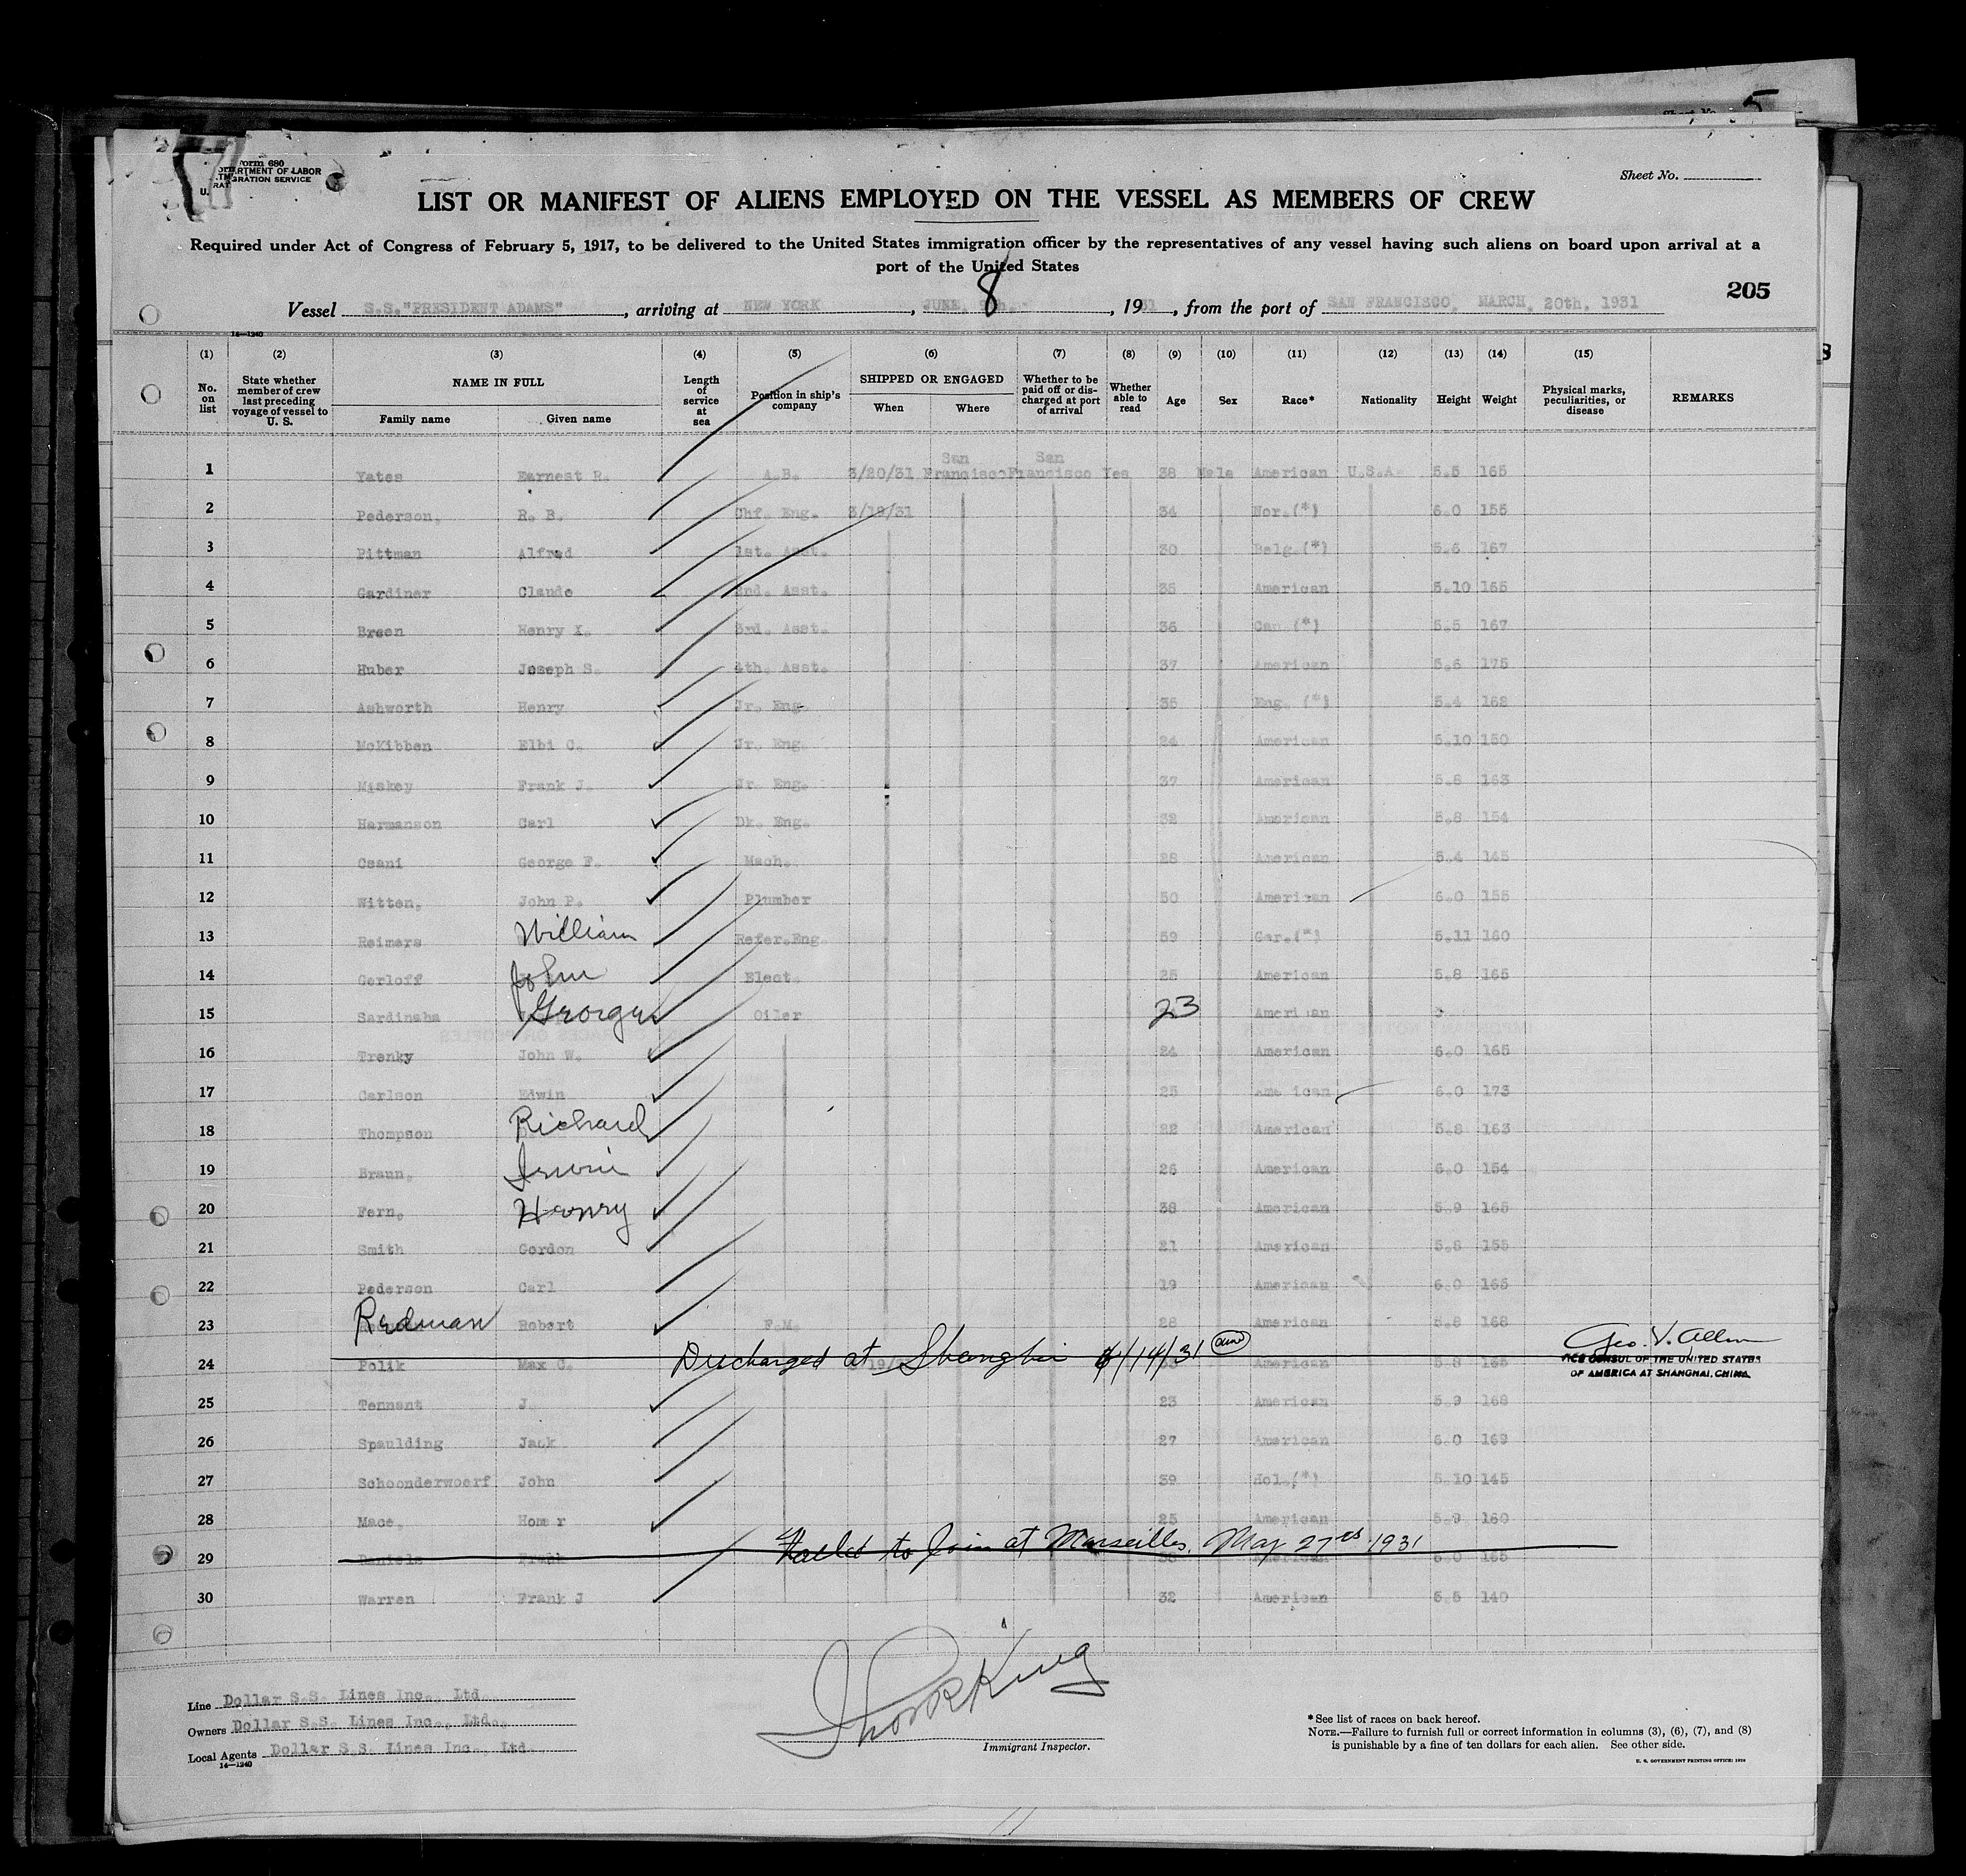 5
Form 680
DEPARTMENT OF LABOR
IMMIGRATION SERVICE
Sheet No.
LIST OR MANIFEST OF ALIENS EMPLOYED ON THE VESSEL AS MEMBERS OF CREW
Required under Act of Congress of February 5, 1917, to be delivered to the United States immigration officer by the representatives of any vessel having such aliens on board upon arrival at a
port of the United States
205
Vessel S.S."PRESIDENT ADAMS", arriving at NEW YORK, JUNE, 8, 1931, from the port of SAN FRANCISCO, MARCH, 20th, 1931
14—1240
(1) (2) (3) (4) (5) (6) (7) (8) (9) (10) (11) (12) (13) (14) (15)
No. on list State whether member of crew last preceding voyage of vessel to U. S. NAME IN FULL Family name Given name Length of service at sea Position in ship's company SHIPPED OR ENGAGED When Where Whether to be paid off or discharged at port of arrival Whether able to read Age Sex Race* Nationality Height Weight Physical marks, peculiarities, or disease REMARKS
1 Yates Earnest R. A.B. 3/20/31 San Francisco San Francisco Yes 38 Male American U.S.A. 5.5 165
2 Pederson, R. B. Chf. Eng. 3/19/31 34 Nor.(*) 6.0 155
3 Pittman Alfred 1st. Asst. 30 Belg.(*) 5.6 167
4 Gardiner Claude 2nd. Asst. 35 American 5.10 165
5 Breen Henry X. 3rd. Asst. 36 Can.(*) 5.5 167
6 Huber Joseph S. 4th. Asst. 37 American 5.6 175
7 Ashworth Henry Jr. Eng. 35 Eng. (*) 5.4 162
8 McKibben Elbi C. Jr. Eng. 24 American 5.10 150
9 Miskey Frank J. Jr. Eng. 37 American 5.8 163
10 Harmanson Carl Dk. Eng. 32 American 5.8 154
11 Ceani George F. Mach. 28 American 5.4 145
12 Witten, John P. Plumber 50 American 6.0 155
13 Reimers William Refer.Eng. 59 Ger.(*) 5.11 160
14 Gerloff John Elect. 25 American 5.8 165
15 Sardinaha George Oiler 23 American
16 Trenky John W. 24 American 6.0 165
17 Carlson Edwin 25 American 6.0 173
18 Thompson Richard 22 American 5.8 163
19 Braun, Irwin 26 American 6.0 154
20 Fern, Henry 38 American 5.9 165
21 Smith Gordon 21 American 5.8 155
22 Pederson Carl 19 American 6.0 165
23 Redman Robert F.M. 28 American 5.8 168
24 Polik Max C. Discharged at Shanghai 4/14/31 American 5.8 165
Geo. V. Allen
VICE CONSUL OF THE UNITED STATES
OF AMERICA AT SHANGHAI, CHINA.
25 Tennant J. 23 American 5.9 168
26 Spaulding Jack 27 American 6.0 169
27 Schoonderwoerf John 39 Hol.(*) 5.10 145
28 Mace, Homer 25 American 5.9 160
29 Daniels Frank Failed to Join at Marseilles, May 27th 1931 American 6.0 165
30 Warren Frank J 32 American 5.5 140
Line Dollar S.S. Lines Inc., Ltd.
Owners Dollar S.S. Lines Inc., Ltd.
Local Agents Dollar S.S. Lines Inc., Ltd.
14—1240
Immigrant Inspector.
*See list of races on back hereof.
NOTE.—Failure to furnish full or correct information in columns (3), (6), (7), and (8)
is punishable by a fine of ten dollars for each alien. See other side.
U. S. GOVERNMENT PRINTING OFFICE: 1930